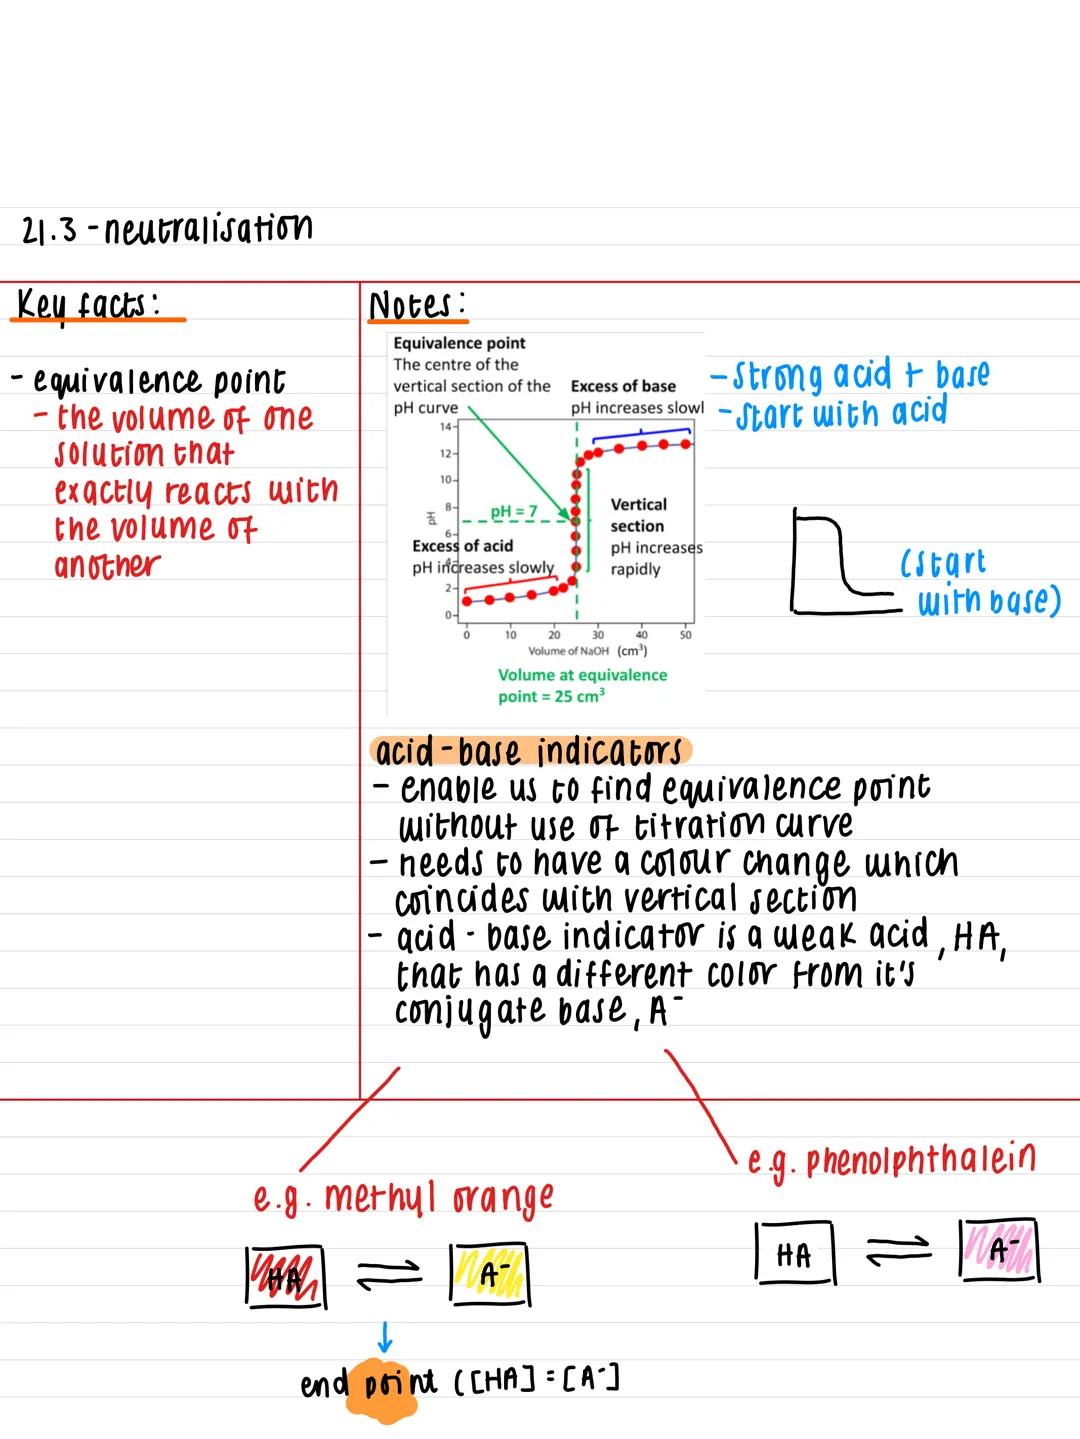 21.3 - neutralisation
Key facts:
- equivalence point
- the volume of one
solution that
exactly reacts with
the volume of
another
Notes:
Equivalence point
The centre of the
vertical section of the
pH curve
Excess of base
pH increases slowl
14
12
10
8
6
4
2
0
pH
pH = 7
Excess of acid
pH increases slowly
Vertical
section
pH increases
rapidly
0 10 20 30 40 50
Volume of NaOH (cm³)
Volume at equivalence
point = 25 cm³
- strong acid + base
- start with acid
(start
with base)
acid-base indicators
- enable us to find equivalence point
without use of titration curve
- needs to have a colour change which
coincides with vertical section
- acid-base indicator is a weak acid, HA,
that has a different color from it's
conjugate base, A⁻
e.g. methyl orange
HA ⇌ A⁻
end point ([HA] = [A⁻]
e.g. phenolphthalein
HA ⇌ A⁻